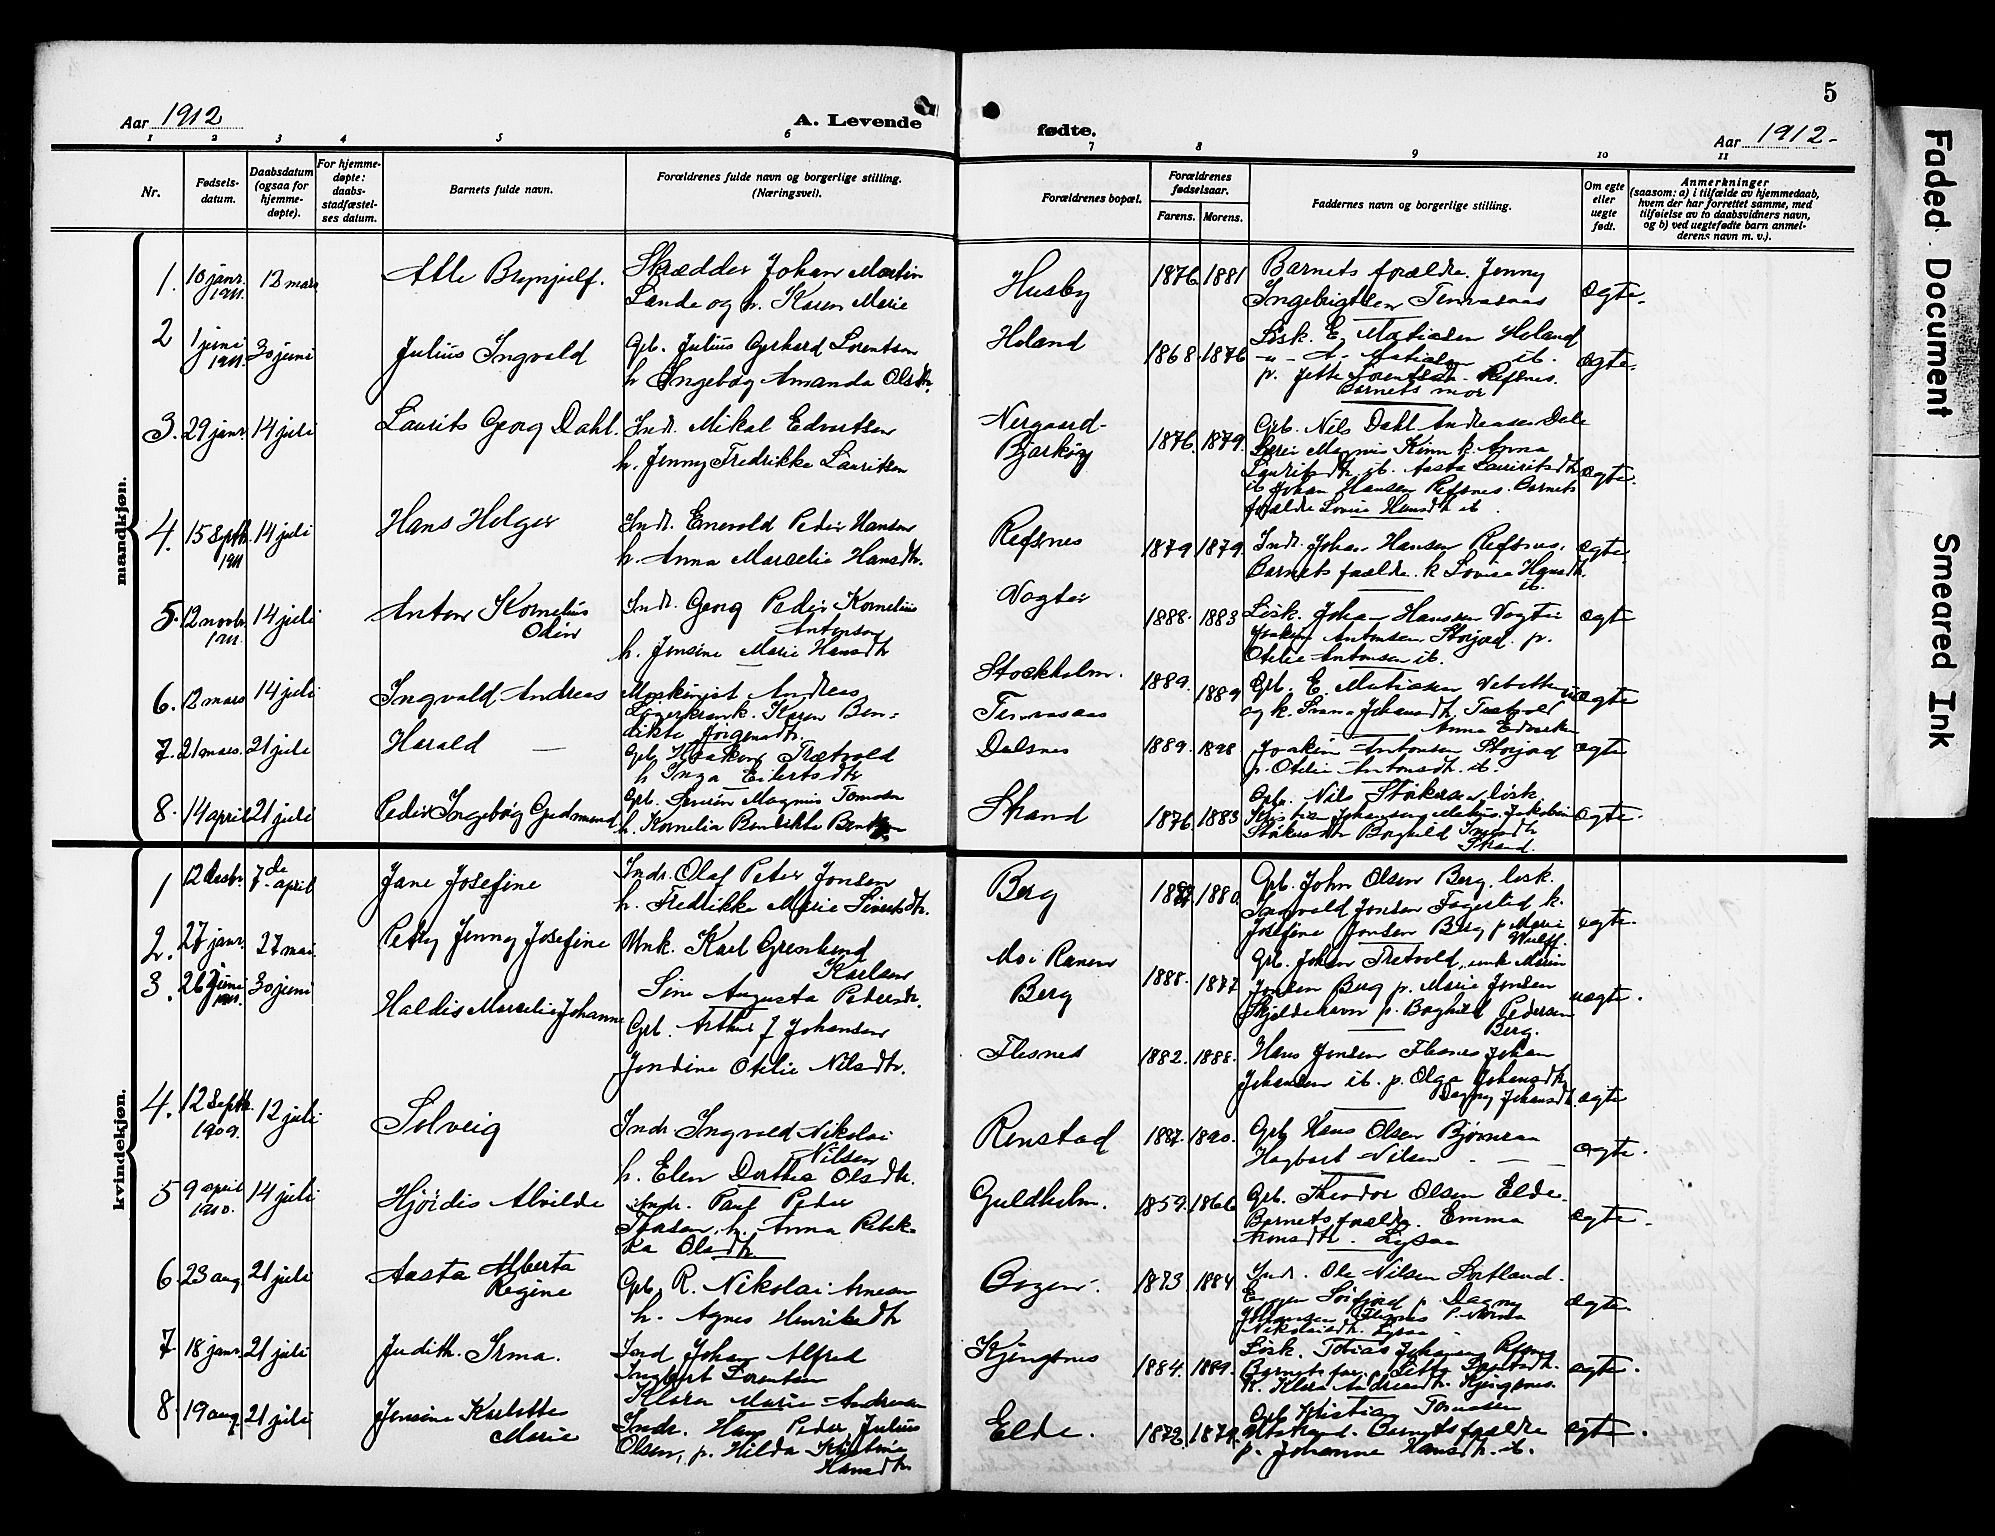 5
Aar 1912
A. Levende
fødte.
Aar 1912-
1 2 3 4 5 6 7 8 9 10 11
Nr.
Fødsels-
datum.
Daabsdatum
(ogsaa for
hjemme-
døpte).
For hjemme-
døpte:
daabs-
stadfæstel-
ses datum.
Barnets fulde navn.
Forældrenes fulde navn og borgerlige stilling.
(Næringsvei).
Forældrenes bopæl.
Forældrenes
fødselsaar.
Farens. Morens.
Faddernes navn og borgerlige stilling.
Om egte
eller
uegte
født.
Anmerkninger
(saasom: a) i tilfælde av hjemmedaab,
hvem der har forrettet samme, med
tilføielse av to daabsvidners navn,
og b) ved uegtefødte barn anmel-
derens navn m. v.).
mandkjøn.
1. 10 janr. 1911. 12 mars Atle Brynjulf. Skrædder Johan Martin
Lande og h. Karen Marie
Husby 1876 1881 Barnets forældre. Jenny
Ingebrigtsen egte.
2 1 juni 1911. 30 juni Julius Ingvald Gbr. Julius Gerhard Lorentsen
h. Ingebog Amanda Olsdtr.
Holand 1868. 1876 Løsk. E. Matiasen Holand
Matiasen ib.
p. Jette Lorentsdtr. Refsnes.
Barnets mor
egte.
3. 29 janr. 14 juli Laurits Georg Dahl. Indr. Mikal Edvartsen
h. Jenny Fredrikke Lauritsen
Nergaard-
Bjarkøy
1876. 1879. Gbr. Nils Dahl Andreasen Dale
Magnus Kinn k. Anna
Lauritsdtr. ib. Aasta Lauritsdtr.
ib Johan Hansen Refsnes. Barnets
forældre Hansdtr. ib.
egte.
4. 15 septb. 1911 14 juli Hans Holger Indr. Enevold Peder Hansen
h. Anna Marselie Hansdtr.
Refsnes 1879 1879. Indr. Johan Hansen Refsnes.
Barnets forældre. k Lovise Hansdtr.
ib.
egte.
5. 12 novbr. 1911. 14 juli Anton Kornelius
Odin
Indr. Georg Peder Kornelius
Antonsen
h. Jensine Marie Hansdtr
Vogter 1888. 1883 Løsk. Johan Hansen Vogter
Joakim Antonsen Storjord. p.
Otelie Antonsen ib.
egte
6. 12 mars 14 juli Ingvald Andreas Maskinist Andreas
Karen Ben-
dikte Jørgensdtr.
Stockholm.
1889. 1889 Gbr. E. Matiasen
og k. Johansdtr. Trætvold
Anna Edvartsen
egte
7. 21 mars. 21 juli Harald — Gbr. Haakon Trætvold
h Inga Eilertsdtr
Dalsnes 1889. 1898 Joakim Antonsen Storjord
p. Otelie Antonsdtr. ib.
egte
8. 14 april 21 juli Peder Ingebøg Gudmund Gbr. Magnus Tomasen
h. Kornelia Bendikte
Strand 1876. 1883 Gbr. Nils løsk.
Kristian Johansen
Borghild
Strand.
egte.
kvindekjøn.
1 12 desbr. 7de april Jane Josefine Indr. Olaf Peter Jonsen
h. Fredrikke Marie Sivertsdtr.
Berg 1880 Gbr. John Olsen Berg. løsk.
Ingvald Jonsen Fagerlid k.
Josefine Jonsen Berg p Marie
Wulff.
egte.
2. 27 janr. 27 mai Petty Jenny Josefine Unk. Karl Grenlund
Karlsen
Sine Augusta Pedersdtr.
Mo i Ranen
Berg
1888. 1877 Gbr. Johan Trætvold, unk
Jonsen Berg p. Marie Jonsen
Skjeldehavn p. Borghild Pedersen
Berg.
uegte.
3. 26 juni 1911. 30 juni Haldis Marselie Johanne Gbr. Arthur J Johansen
Jordine Otelie Nilsdtr.
Flesnes 1882. 1888. Hans Jonsen Flesnes Johan
Johansen ib. p. Olga Johansdtr
Dagny Johansdtr.
egte
4. 12 septb. 1909. 12 juli Solveig Indr. Ingvald Nikolai
Nilsen
h. Elen Dorthea Olsdtr.
Renstad 1887. 1890. Gbr. Hans Olsen Bjørnraa
Hagbart Nilsen — —
egte.
5 9 april 1910. 14 juli Hjørdis Alvilde Indr. Paul Peder
h. Anna Rebek-
ka Olsdtr
Guldholm. 1859. 1866 Gbr. Theodor Olsen Elde.
Barnets forældre. Emma
Aronsdtr. Lysaa
egte.
6 23 aug. 21 juli Aasta Alberta
Regine
Gbr. R. Nikolai Arnesen
h. Agnes Henriksdtr
Bogen. 1873. 1884 Indr. Ole Nilsen Sortland.
p. Dagny
Johansen Flesnes
Nikolaisdtr. Lysaa
egte.
7 18 janr. 21 juli Judith. Irma. Ind Johan Alfred
Ingbart Lorentsen
Klara Marie Andresen
Kjengsnes 1884. 1889. Løsk. Tobias Johansen Refsnes
Barnets far.
k. Klara Andreasdtr. Kjengsnes.
egte.
8. 19 aug. 21 juli Jensine Karlotte
Marie
Indr. Hans Peder Julius
Olsen, p. Hilda Kristine
Hansdtr.
Elde. 1872 1879. Gbr. Kristian Tomasen
Barnets forældre
p. Johanne Hansdtr. ib.
egte.
Faded Document
Smeared Ink